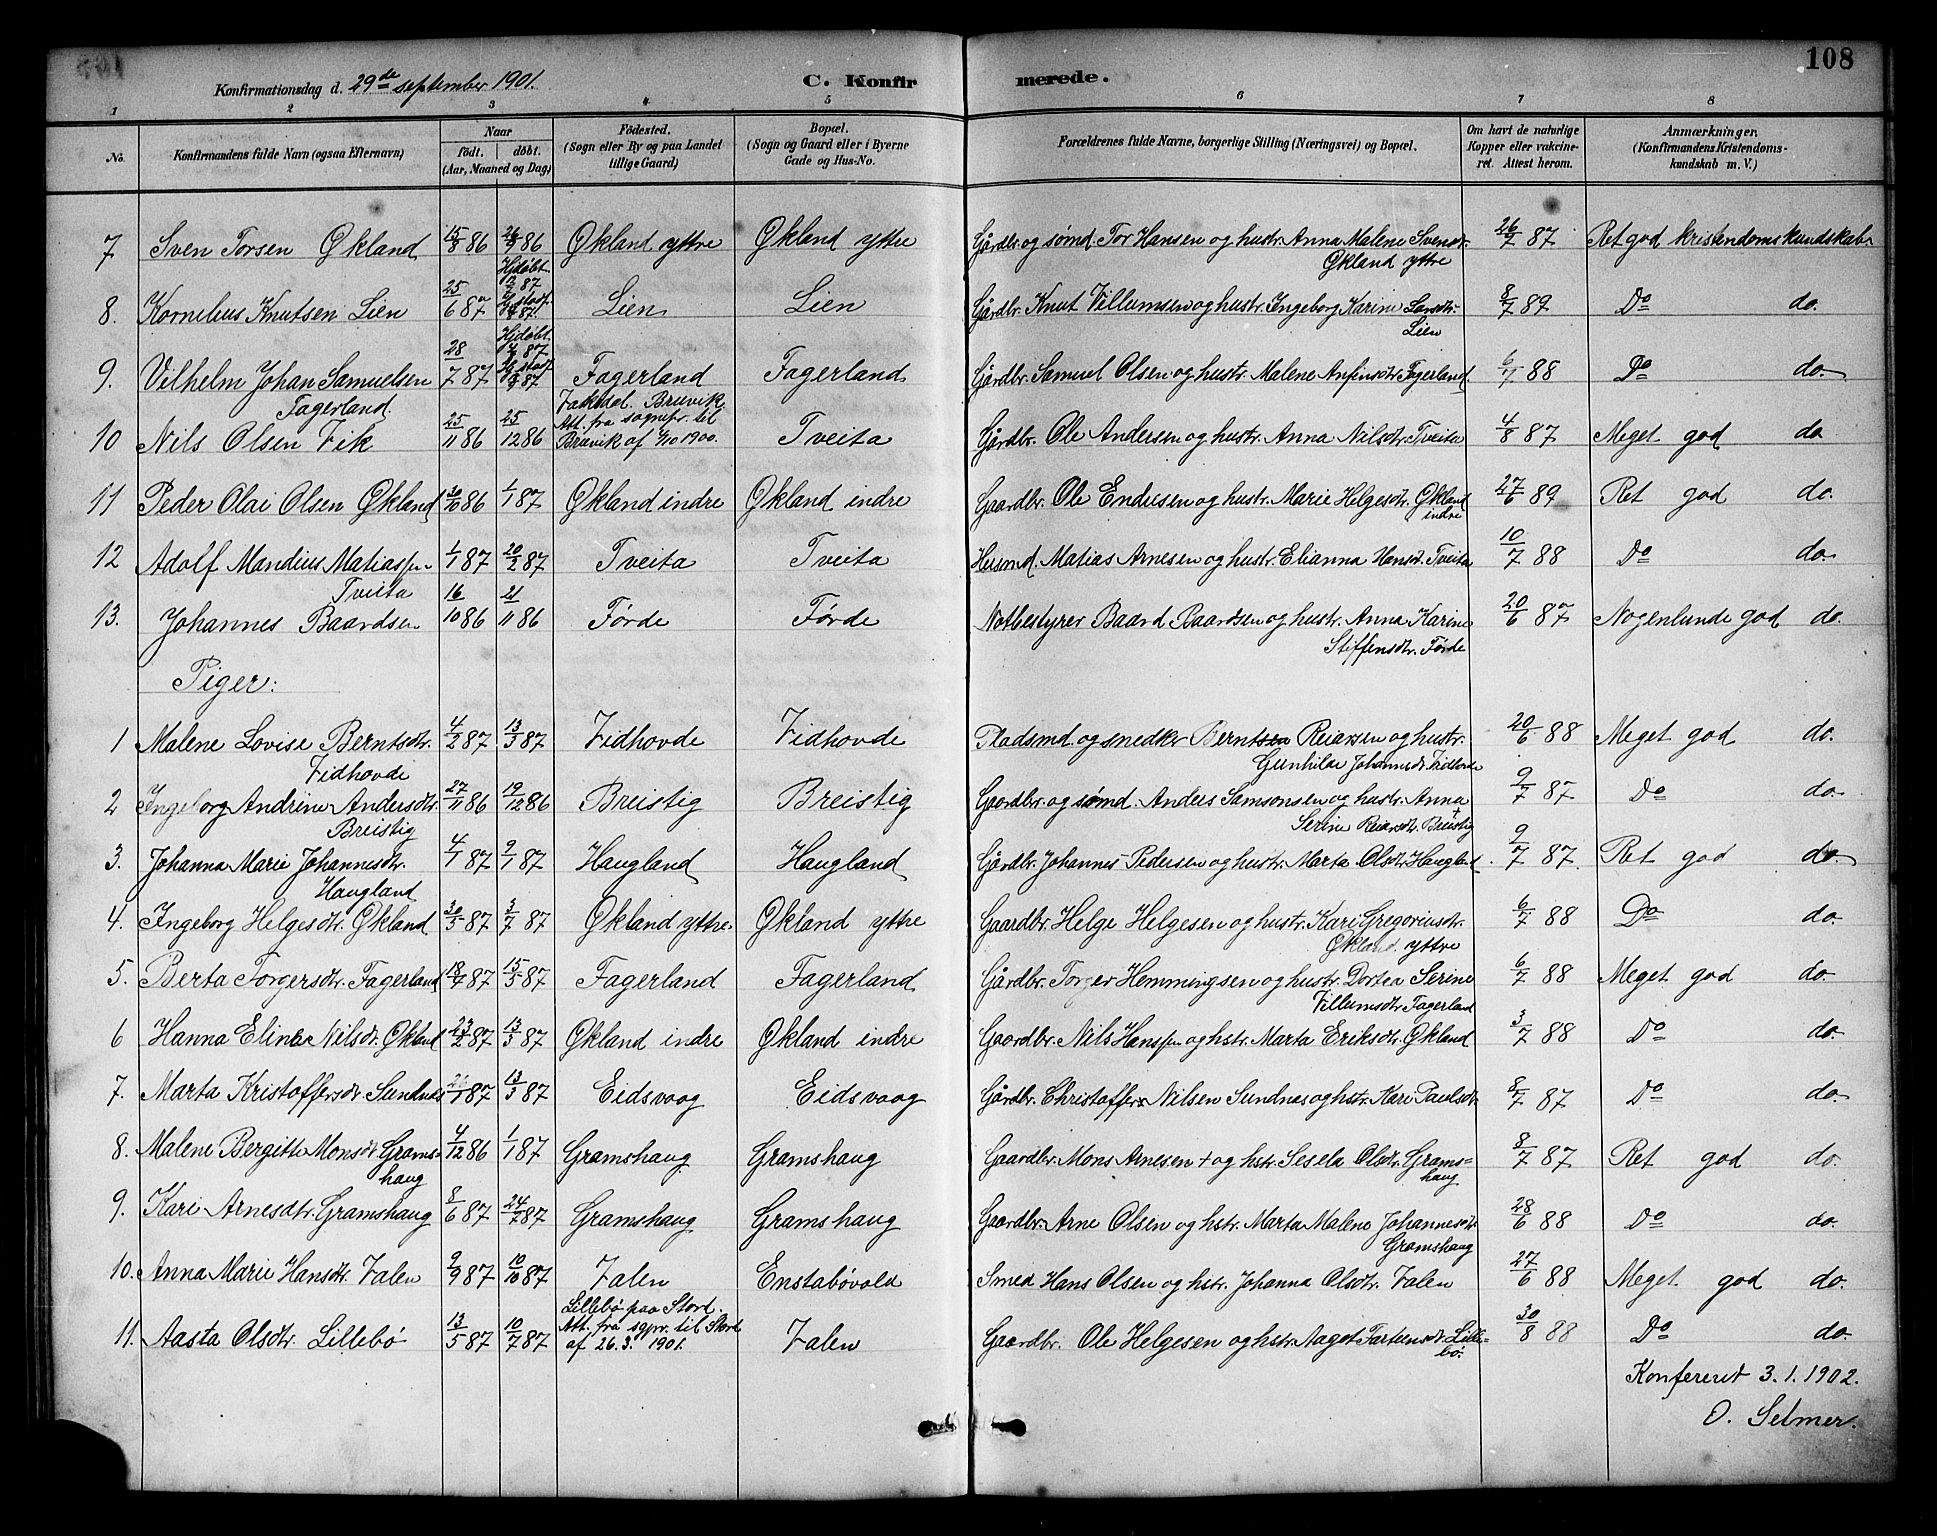 108
Konfirmationsdag d. 29de september 1901.
C. Konfirmerede.
1 2 3 4 5 6 7 8
No.
Konfirmandens fulde Navn (ogsaa Efternavn)
Naar
födt. döbt.
(Aar, Maaned og Dag)
Födested.
(Sogn eller By og paa Landet
tillige Gaard)
Bopæl.
(Sogn og Gaard eller i Byerne
Gade og Hus-No.
Forældrenes fulde Navne, borgerlige Stilling (Næringsvei) og Bopæl.
Om havt de naturlige
Kopper eller vakcine-
ret. Attest herom.
Anmærkninger.
(Konfirmandens Kristendoms-
kundskab m. V.)
7 Sven Torsen Økland 15/8 86 26/9 86 Økland yttre Økland yttre Gårdbr. og sømd. Tor Hansen og hustr. Anna Malene Svensdtr. Økland yttre 26/7 87 Ret god kristendomskundskab
8. Kornelius Knutsen Lien 25/6 87 Hjdøbt. Lien Lien Gårdbr. Knut Villumsen og hustr. Ingeborg Karine Larsdtr. Lien 8/7 89 Do do.
9. Vilhelm Johan Samuelsen Fagerland 28/7 87 Hjdøbt. Fagerland Fagerland Gårdbr. Samuel Olsen og hustr. Malene Anfinsdtr. Fagerland. 88 Do do.
10 Nils Olsen Vik 25/11 86 25/12 86 Vaksdal. Bruvik Att. fra sognepr. til Bruvik af 1900. Tveita Gårdbr. Ole Andersen og hustr. Anna Nilsdtr. Tveita 4/8 87 Meget god do
11 Peder Olai Olsen Økland 30/10 86 1/1 87 Økland indre Økland indre Gaardbr. Ole Endresen og hustr. Marie Helgesdtr. Økland indre 27/6 89 Ret god do.
12 Adolf Mandius Matiassen Tveita 1/1 87 20/2 87 Tveita Tveita Husmd. Matias Arnesen og hustr. Elianna Hansdtr. Tveita 10/7 88 Do do.
13. Johannes Baardsen 16/10 86 21/11 86 Førde Førde Notbestyrer Baard Baardsen og hustr. Anna Karine Stiffensdtr. Førde 20/6 87 Nogenlunde god do.
Piger:
1 Malene Lovise Berntsdtr. Vidhovde 4/2 87 13/3 87 Vidhovde Vidhovde Pladsmd. og snedker Berntsen Reiarsen og hustr. Gunhilde Johannesdtr. Vidhovde 20/6 88 Meget god do.
2 Ingeborg Andrine Andersdtr. Breistig 27/11 86 19/12 86 Breistig Breistig Gaardbr. og sømd. Anders Samsonsen og hustr. Anna Serine Reiarsdtr. Breistig 9/7 87 Do do.
3. Johanna Marie Johannesdtr. Haugland 4/1 87 9/1 87 Haugland Haugland Gårdbr. Johannes Pedersen og hustr. Marta Olsdtr. Haugland. 9/7 87 Ret god do.
4. Ingeborg Helgesdtr. Økland 30/5 87 3/7 87 Økland yttre. Økland yttre Gaardbr. Helge Helgesen og hustr. Kari Gregoriusdtr. Økland yttre 6/7 88 Do do.
5. Berta Torgersdtr. Fagerland 87 15/5 87 Fagerland Fagerland Gårdbr. Torger Hemmingsen og hustr. Dortea Serine Villumsdtr. Fagerland 6/7 88 Meget god do.
6 Hanna Eline Nilsdtr. Økland 23/2 87 13/3 87 Økland indre Økland indre Gaardbr. Nils Hanssen og hstr. Marta Eriksdtr. Økland 3/7 88 Do do.
7. Marta Kristoffersdtr. Sundnes 87 13/3 87 Eidsvaag Eidsvaag Gårdbr. Christoffer Nilsen Sundnæs og hstr. Kari Paulsdtr. 8/7 87 Do do.
8. Malene Bergitte Monsdtr. Gramshaug 4/12 86 1/1 87 Gramshaug Gramshaug Gaardbr. Mons Arnesen + og hstr. Sesela Olsdtr. Gramshaug 8/7 87 Ret god do.
9. Kari Arnesdtr. Gramshaug 8/6 87 24/7 87 Gramshaug Gramshaug Gaardbr. Arne Olsen og hstr. Marta Malene Johannesdtr. Gramshaug 28/6 88 Do do.
10. Anna Marie Hansdtr. Valen 9/9 87 10/10 87 Valen Enstabövold Smed Hans Olsen og hstr. Johanna Olsdtr. Valen 27/6 88 Meget god do.
11. Aasta Olsdtr. Lillebö 13/5 87 10/7 87 Lillebö paa Stord. Att. fra sgpr. til Stord af 26.3. 1901. Valen Gaardbr. Ole Helgesen og hstr. Aaget Tartensdtr. Lillebö. 30/8 88 Do do.
Konfereret 3.1.1902.
O. Selmer.